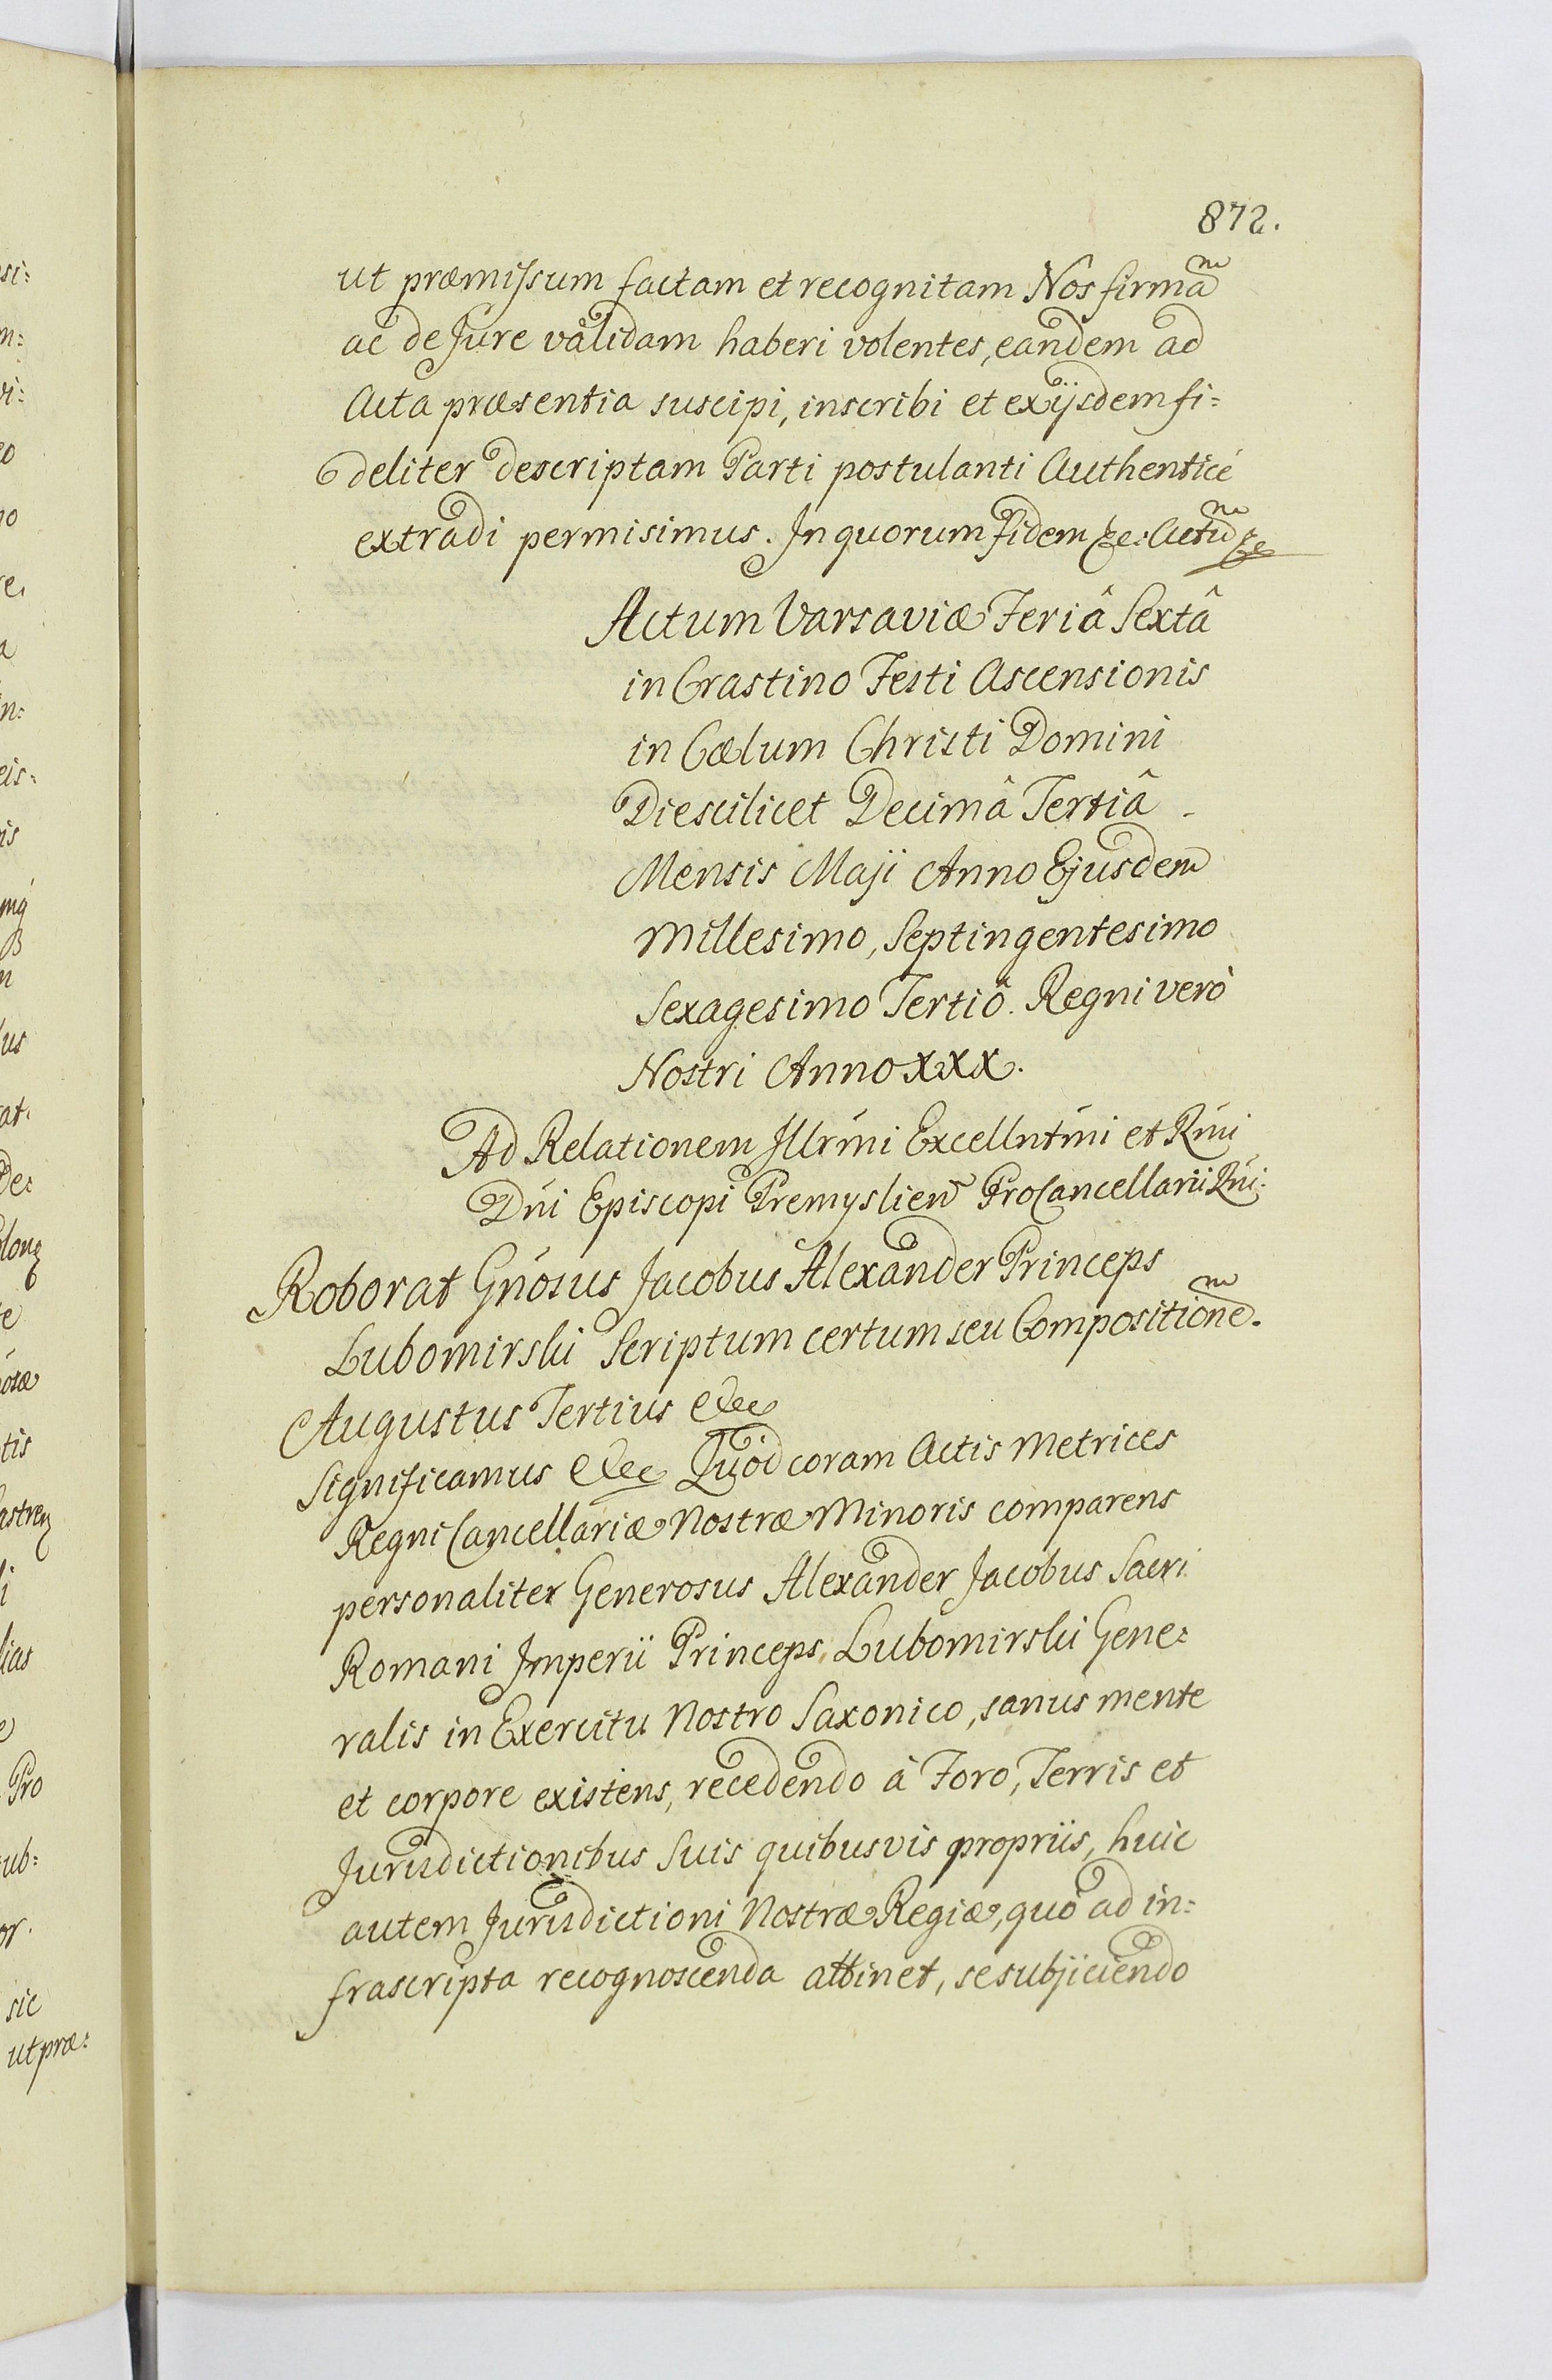 872.
ut præmissum factam et recognitam Nos firmam
ac de Jure validam haberi volentes, eandem ad
Acta præsentia suscipi, inscribi et ex ijsdem fi=
deliter descriptam Parti postulanti Authenticé
extradi permisimus. In quorum fidem &c: Actum &c
Actum Varsaviæ Feriâ Sextâ
in Crastino Festi Ascensionis
in Cælum Christi Domini
Die scilicet Decimâ Tertiâ
Mensis Maji Anno Ejusdem
Millesimo, Septingentesimo
Sexagesimo Tertiô. Regni verò
Nostri Anno XXX.
Ad Relationem Illrmi Excellntmi et Rmi
Dni Episcopi Premyslien ProCancellarii Rni.
Roborat Gnosus Jacobus Alexander Princeps
Lubomirski Scriptum certum seu Compositionem.
Augustus Tertius &c
Significamus &c Quòd coram Actis Metrices
Regni Cancellariæ Nostræ Minoris comparens
personaliter Generosus Alexander Jacobus Sacri
Romani Imperii Princeps Lubomirski Gene=
ralis in Exercitu Nostro Saxonico, sanus mente
et corpore existens, recedendo à Foro, Terris et
Jurisdictionibus Suis quibusvis propriis, huic
autem Jurisdictioni Nostræ Regiæ, quò ad in=
frascripta recognoscenda attinet, se subjiciendo